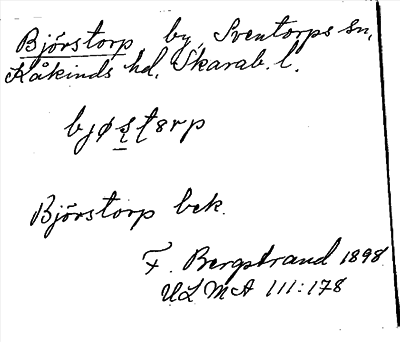 Björstorp by, Sventorps sn,
Kåkinds hd, Skarab. l.
Björstorp bek.
F. Bergstrand 1898
ULMA 111:178